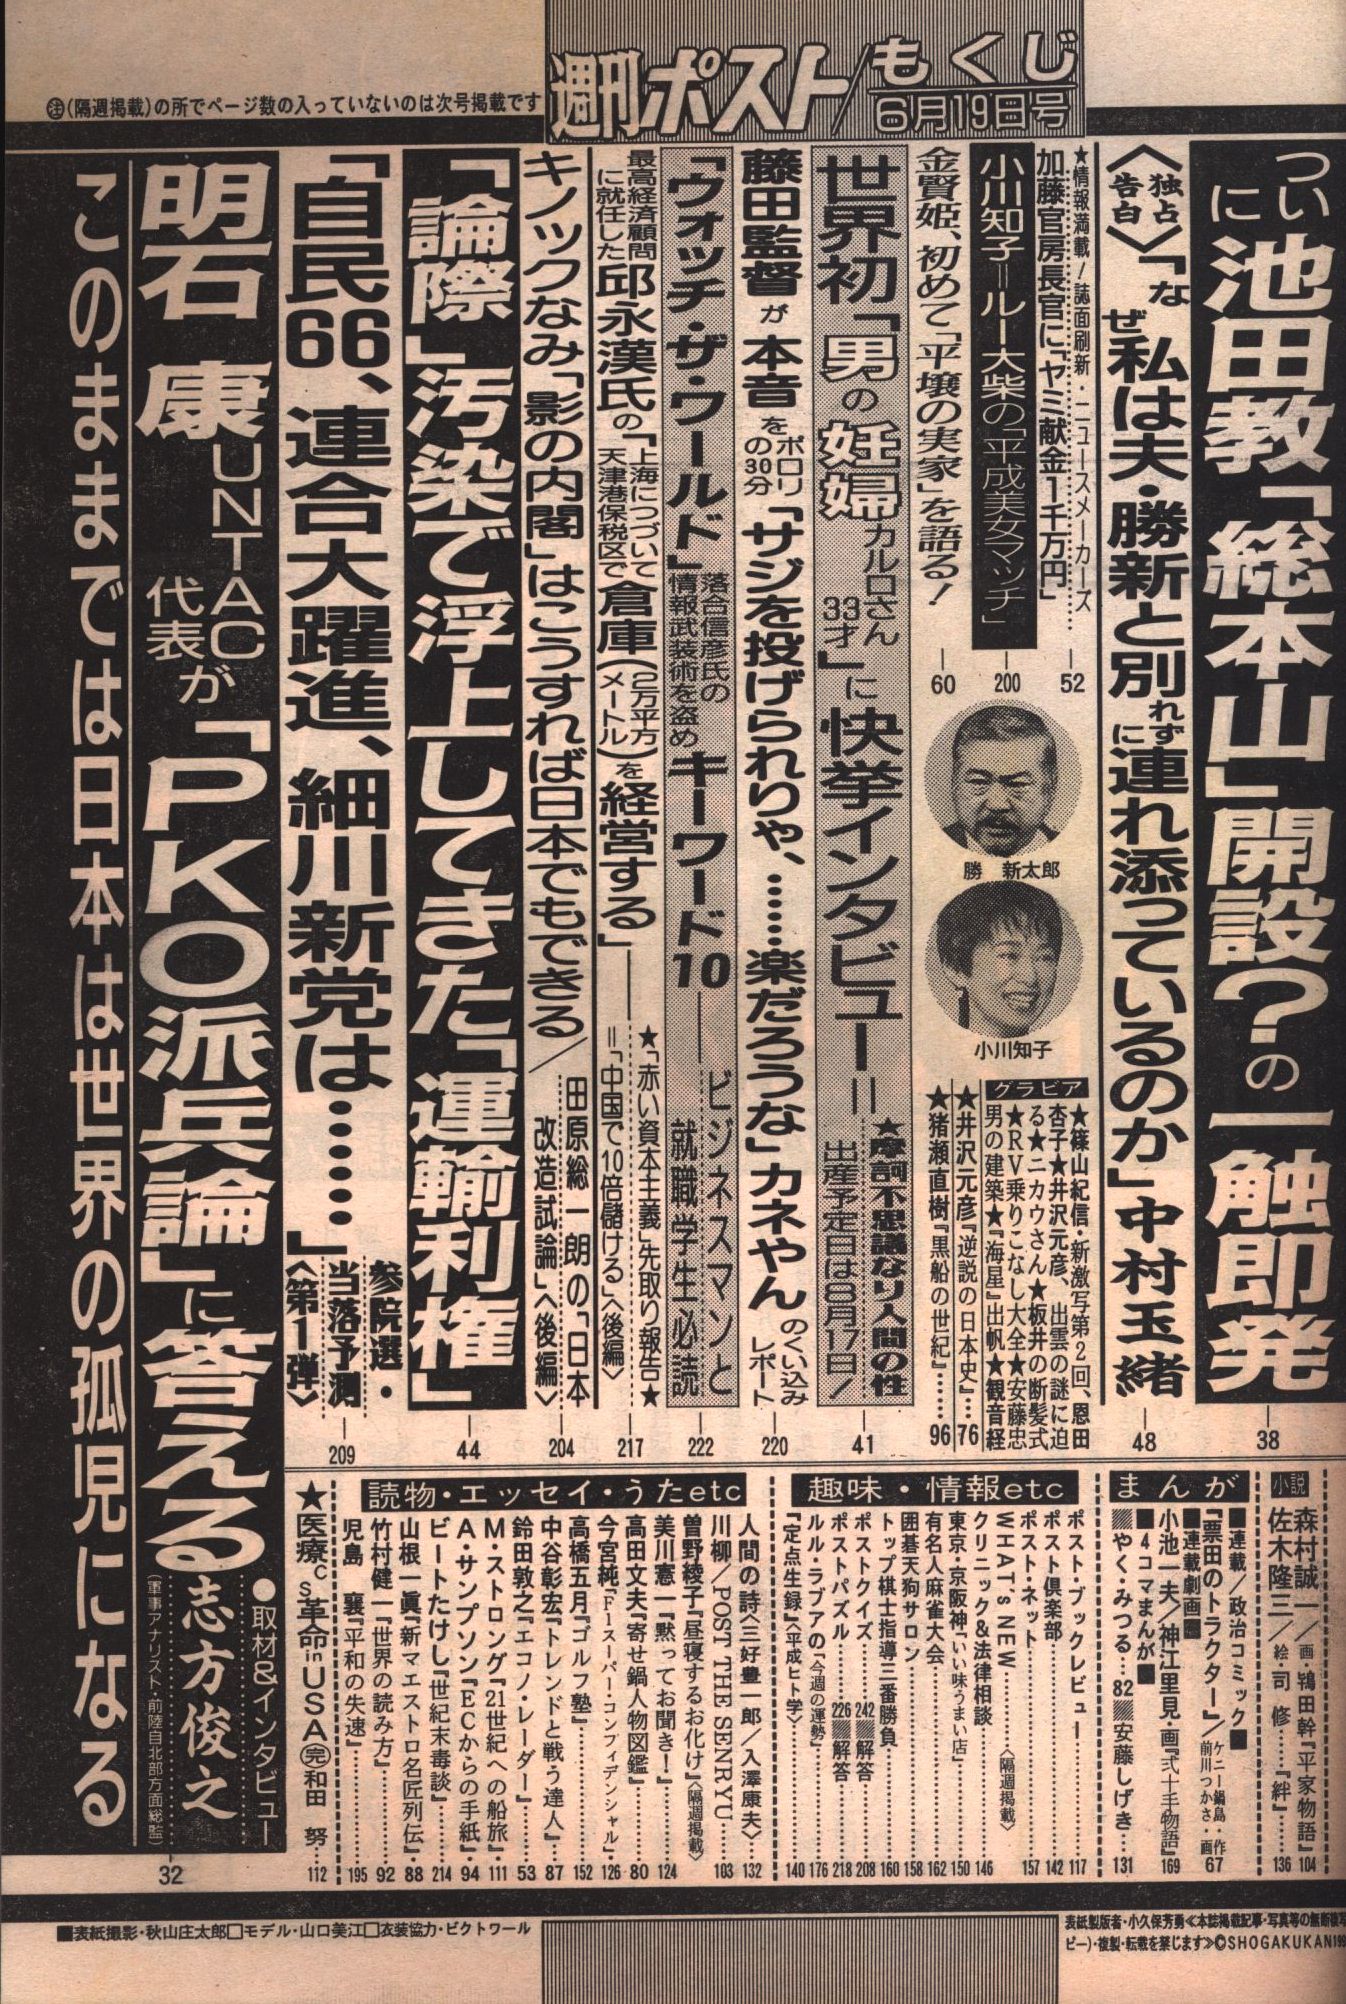 週刊ポスト/もくじ
6月19日号
㊟(隔週掲載)の所でページ数の入っていないのは次号掲載です
ついに池田教「総本山」開設?の一触即発 38
〈独占告白〉「なぜ私は夫・勝新と別れずに連れ添っているのか」中村玉緒 48
★情報満載/誌面刷新・ニュースメーカーズ
加藤官房長官に「ヤミ献金1千万円」…… 52
小川知子=ルー大柴の「平成美女マッチ」 200
金賢姫、初めて「平壌の実家」を語る! 60
勝 新太郎
小川知子
グラビア
★篠山紀信・新激写第2回、恩田
杏子★井沢元彦、出雲の謎に迫
る★ニカウさん★板井の断髪式
★RV乗りこなし大全★安藤忠
男の建築★『海星』出帆★観音経
★井沢元彦『逆説の日本史』… 76
★猪瀬直樹『黒船の世紀』…… 96
世界初「男の妊婦カルロさん33才」に快挙インタビュー=★摩訶不思議なり人間の性 出産予定日は8月17日! 41
藤田監督が本音をポロリの30分「サジを投げられりゃ、……楽だろうな」カネやんのくい込みレポート 220
「ウォッチ・ザ・ワールド」落合信彦氏の情報武装術を盗めキーワード10――ビジネスマンと就職学生必読 222
最高経済顧問に就任した邱永漢氏の「上海につづいて天津港保税区で倉庫(2万平方メートル)を経営する」――★「赤い資本主義」先取り報告★=「中国で10倍儲ける」〈後編〉 217
キノックなみ「影の内閣」はこうすれば日本でもできる/田原総一朗の「日本改造試論」〈後編〉 204
「論際」汚染で浮上してきた「運輸利権」 44
「自民66、連合大躍進、細川新党は………」参院選・当落予測〈第1弾〉 209
明石 康UNTAC代表が「PKO派兵論」に答える ●取材&インタビュー 志方俊之(軍事アナリスト・前陸自北部方面総監) 32
このままでは日本は世界の孤児になる
小説
森村誠一/画・鴇田幹『平家物語』 104
佐木隆三/絵・司 修…『絆』… 136
まんが
■連載/政治コミック■
『票田のトラクター』/ケニー鍋島・作 前川つかさ・画 67
■連載劇画■
小池一夫/神江里見・画『弐十手物語』 169
■4コマまんが■
▨やくみつる… 82▨安藤しげき… 131
趣味・情報etc
ポスト・ブックレビュー…… 117
ポスト倶楽部…… 142
ポスト・ネット…… 157
WHAT's NEW……〈隔週掲載〉
クリニック&法律相談…… 146
東京・京阪神「いい味うまい店」… 150
有名人麻雀大会…… 162
囲碁天狗サロン…… 158
トップ棋士指導三番勝負…… 160
ポストクイズ…… 242▨解答… 208
ポストパズル…… 226▨解答… 218
ルル・ラブアの「今週の運勢」… 176
「定点生録」〈平成ヒト学〉…… 140
読物・エッセイ・うたetc
人間の詩〈三好豊一郎/入澤康夫〉 132
川柳/POST THE SENRYU… 103
曽野綾子『昼寝するお化け』〈隔週掲載〉
美川憲一『黙ってお聞き!』…… 124
高田文夫『寄せ鍋人物図鑑』…… 80
今宮純『F1スーパー・コンフィデンシャル』 126
高橋五月『ゴルフ塾』…… 152
中谷彰宏『トレンドと戦う達人』… 87
鈴田敦之『エコノ・レーダー』…… 53
M・ストロング『21世紀への船旅』・ 111
A・サンプソン『ECからの手紙』・ 94
ビートたけし『世紀末毒談』…… 214
山根一眞『新マエストロ名匠列伝』・ 88
竹村健一『世界の読み方』…… 92
児島 襄『平和の失速』…… 195
★医療CS革命inUSA㊡和田 努… 112
■表紙撮影・秋山庄太郎□モデル・山口美江□衣装協力・ビクトワール
表紙製版者・小久保芳勇≪本誌掲載記事・写真等の無断複写
ピー)・複製・転載を禁じます≫©SHOGAKUKAN199